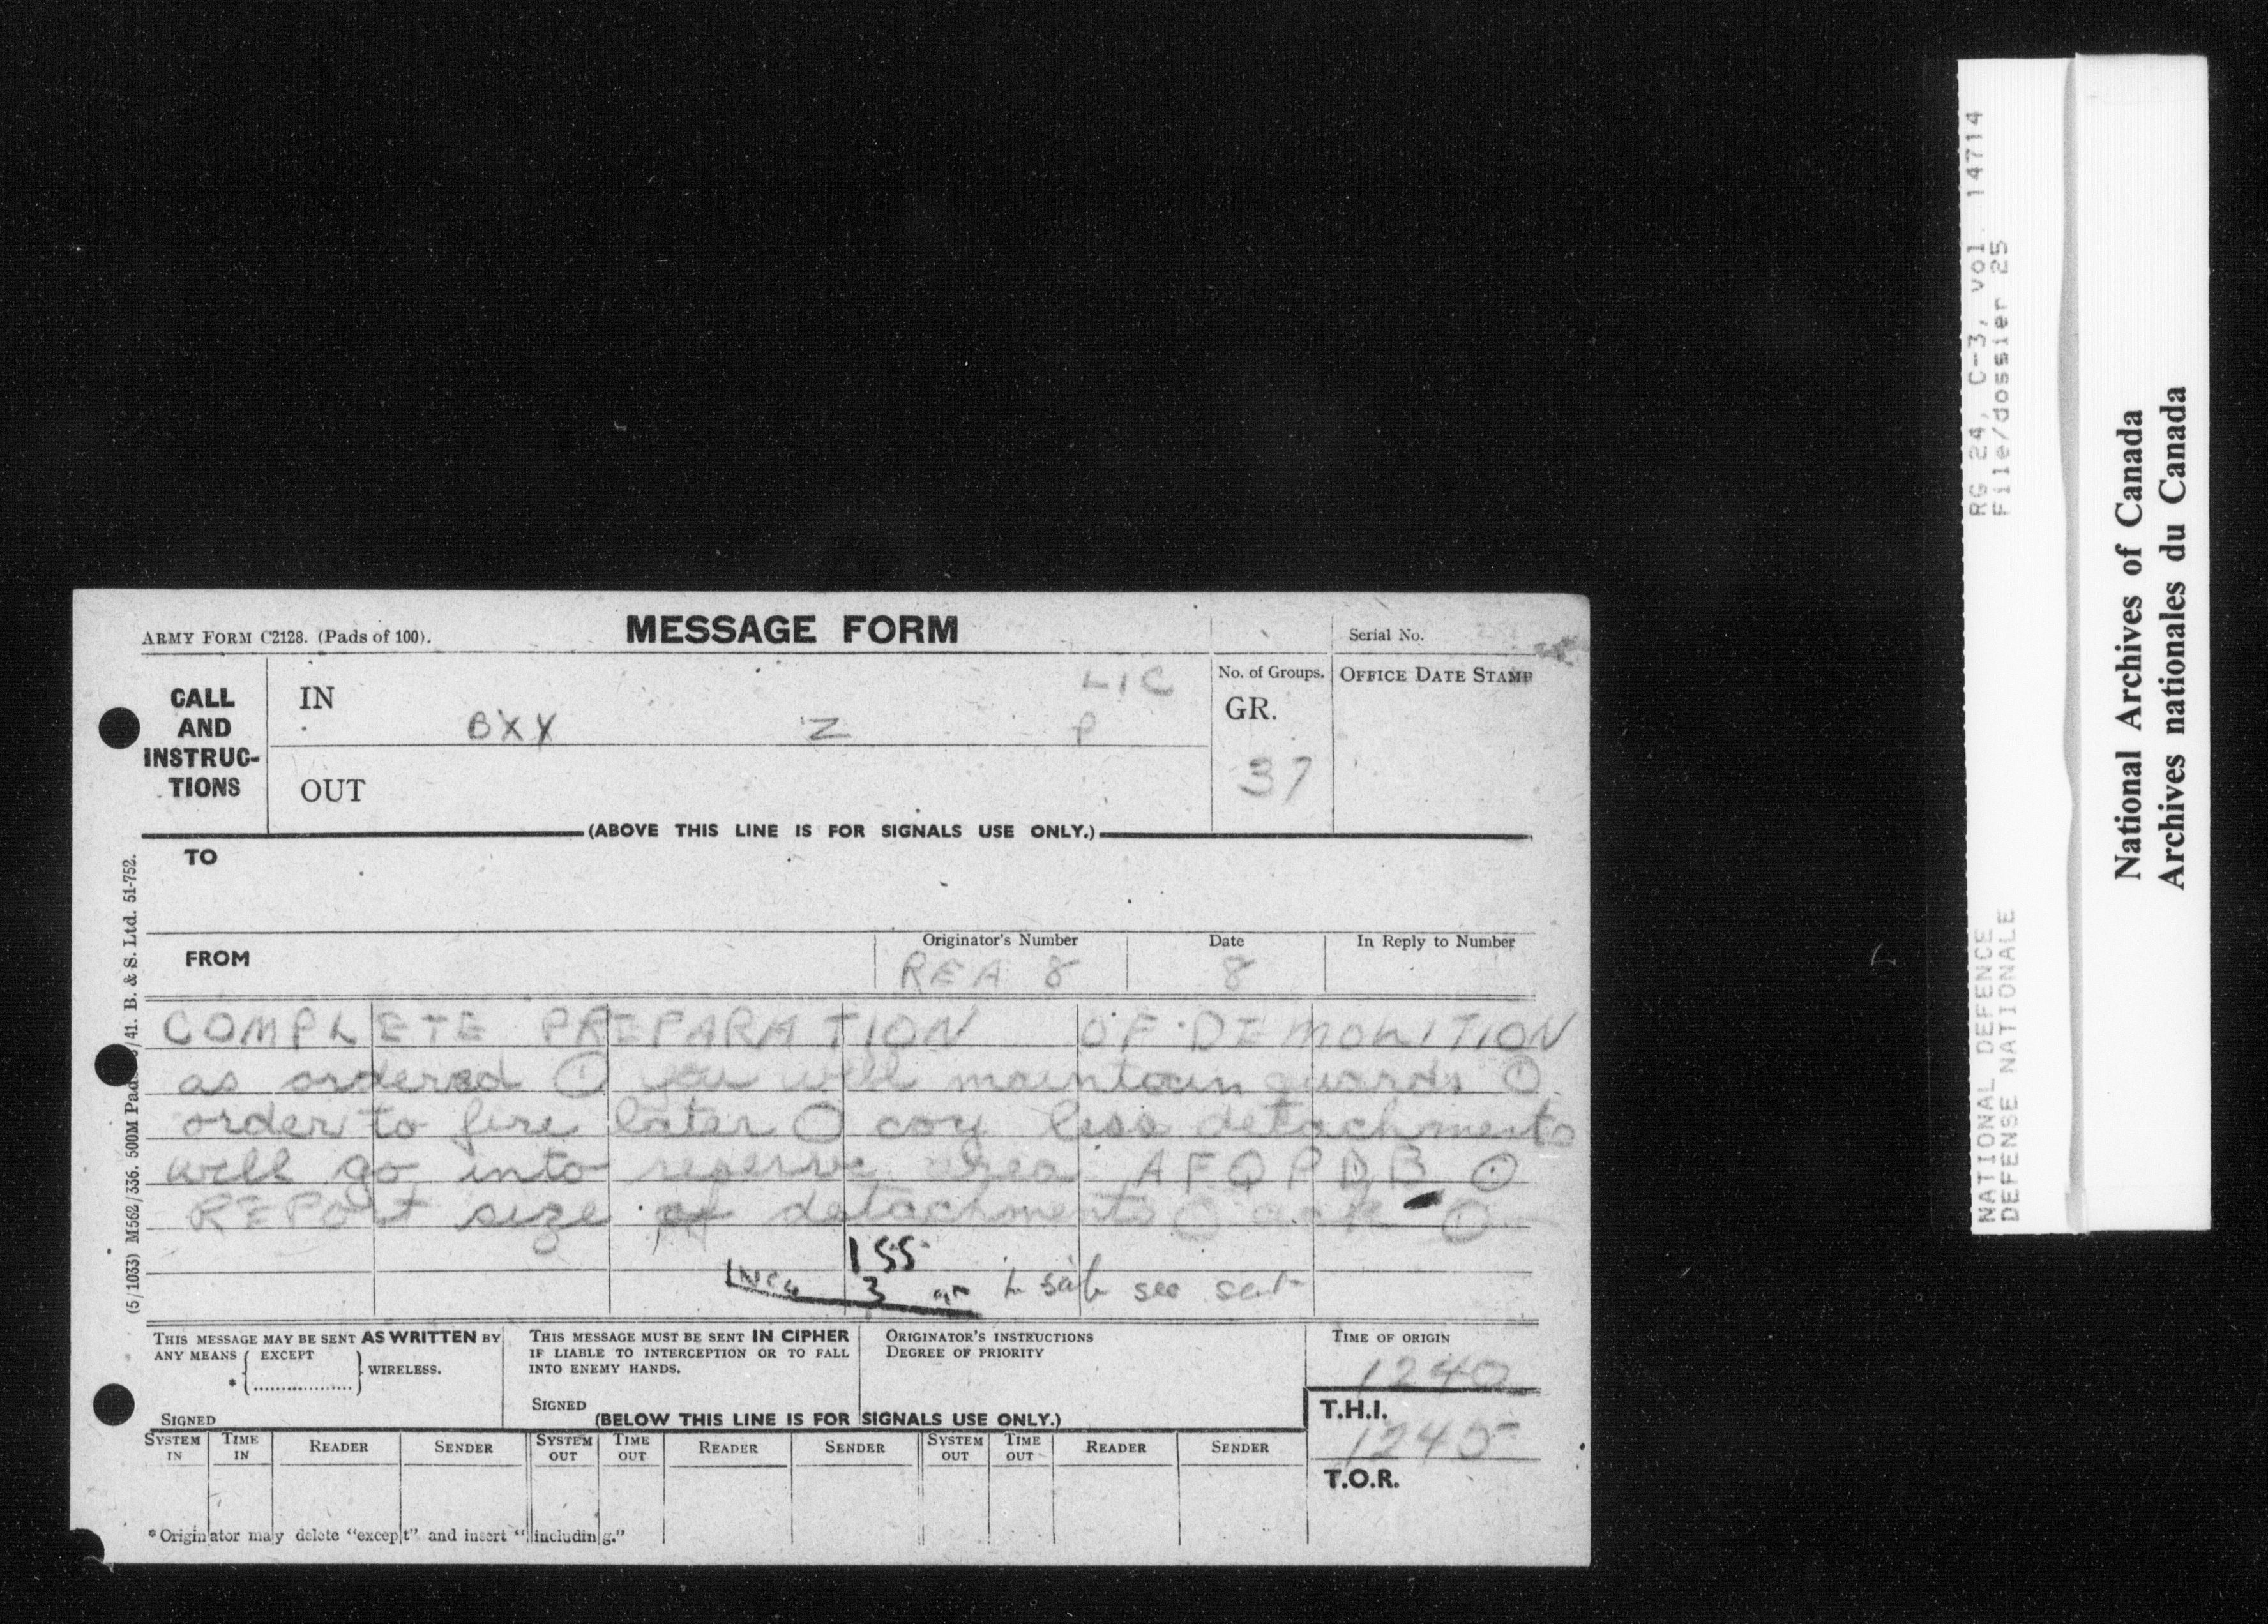 ARMY FORM C2128. (Pads of 100).
MESSAGE FORM
Serial No.
CALL AND INSTRUC-TIONS
IN
LIC
BXY Z P
OUT
No. of Groups.
GR.
37
OFFICE DATE STAMP
(ABOVE THIS LINE IS FOR SIGNALS USE ONLY.)
TO
FROM
Originator's Number
REA 8
Date
8
In Reply to Number
COMPLETE PREPARATION OF DEMOLITION
as ordered ⊙ you will maintain guards ⊙
order to fire later ⊙ coy less detachments
will go into reserve area AFQPDB ⊙
REPORT size of detachments ⊙ ack ⊙
155
3 see sent
THIS MESSAGE MAY BE SENT AS WRITTEN BY
ANY MEANS { EXCEPT } WIRELESS.
* ..................
SIGNED
THIS MESSAGE MUST BE SENT IN CIPHER
IF LIABLE TO INTERCEPTION OR TO FALL
INTO ENEMY HANDS.
SIGNED
ORIGINATOR'S INSTRUCTIONS
DEGREE OF PRIORITY
TIME OF ORIGIN
1240
T.H.I.
1245
T.O.R.
(BELOW THIS LINE IS FOR SIGNALS USE ONLY.)
SYSTEM IN TIME IN READER SENDER SYSTEM OUT TIME OUT READER SENDER SYSTEM OUT TIME OUT READER SENDER
*Originator may delete "except" and insert "including."
(5/1033) M562/336. 500M Pads /41. B. & S. Ltd. 51-752.
RG 24, C-3, vol. 14714
File/dossier 25
NATIONAL DEFENCE
DEFENSE NATIONALE
National Archives of Canada
Archives nationales du Canada